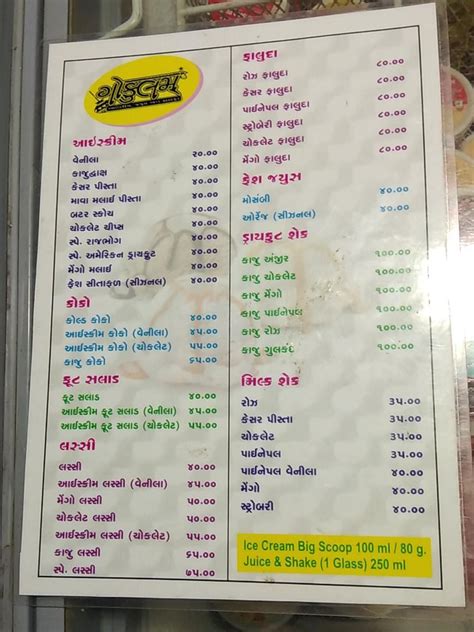 ગોકુલમ્
આઇસ્ક્રીમ
વેનીલા ૨૦.૦૦
કાજુદ્રાક્ષ ૪૦.૦૦
કેસર પીસ્તા ૪૦.૦૦
માવા મલાઈ પીસ્તા ૪૦.૦૦
બટર સ્કોચ ૪૦.૦૦
ચોકલેટ ચીપ્સ ૪૦.૦૦
સ્પે. રાજભોગ ૪૦.૦૦
સ્પે. અમેરિકન ડ્રાયફ્રુટ ૪૦.૦૦
મેંગો મલાઈ ૪૦.૦૦
ફ્રેશ સીતાફળ (સીઝનલ) ૪૦.૦૦
કોકો
કોલ્ડ કોકો ૪૦.૦૦
આઈસ્ક્રીમ કોકો (વેનીલા) ૪૫.૦૦
આઈસ્ક્રીમ કોકો (ચોકલેટ) ૫૫.૦૦
કાજુ કોકો ૬૫.૦૦
ફ્રૂટ સલાડ
ફ્રૂટ સલાડ ૪૦.૦૦
આઈસ્ક્રીમ ફ્રૂટ સલાડ (વેનીલા) ૪૫.૦૦
આઈસ્ક્રીમ ફ્રૂટ સલાડ (ચોકલેટ) ૫૫.૦૦
લસ્સી
લસ્સી ૪૦.૦૦
આઈસ્ક્રીમ લસ્સી (વેનીલા) ૪૫.૦૦
મેંગો લસ્સી ૫૦.૦૦
ચોકલેટ લસ્સી ૫૦.૦૦
આઈસ્ક્રીમ લસ્સી (ચોકલેટ) ૫૫.૦૦
કાજુ લસ્સી ૬૫.૦૦
સ્પે. લસ્સી ૭૫.૦૦
ફાલુદા
રોઝ ફાલુદા ૮૦.૦૦
કેસર ફાલુદા ૮૦.૦૦
પાઈનેપલ ફાલુદા ૮૦.૦૦
સ્ટ્રોબેરી ફાલુદા ૮૦.૦૦
ચોકલેટ ફાલુદા ૮૦.૦૦
મેંગો ફાલુદા ૮૦.૦૦
ફ્રેશ જ્યુસ
મોસંબી ૪૦.૦૦
ઓરેંજ (સીઝનલ) ૪૦.૦૦
ડ્રાયફ્રુટ શેક
કાજુ અંજીર ૧૦૦.૦૦
કાજુ ચોકલેટ ૧૦૦.૦૦
કાજુ મેંગો ૧૦૦.૦૦
કાજુ પાઈનેપલ ૧૦૦.૦૦
કાજુ રોઝ ૧૦૦.૦૦
કાજુ ગુલકંદ ૧૦૦.૦૦
મિલ્ક શેક
રોઝ ૩૫.૦૦
કેસર પીસ્તા ૩૫.૦૦
ચોકલેટ ૩૫.૦૦
પાઈનેપલ ૩૫.૦૦
પાઈનેપલ વેનીલા ૪૦.૦૦
મેંગો ૪૦.૦૦
સ્ટ્રોબરી ૪૦.૦૦
Ice Cream Big Scoop 100 ml / 80 g.
Juice & Shake (1 Glass) 250 ml